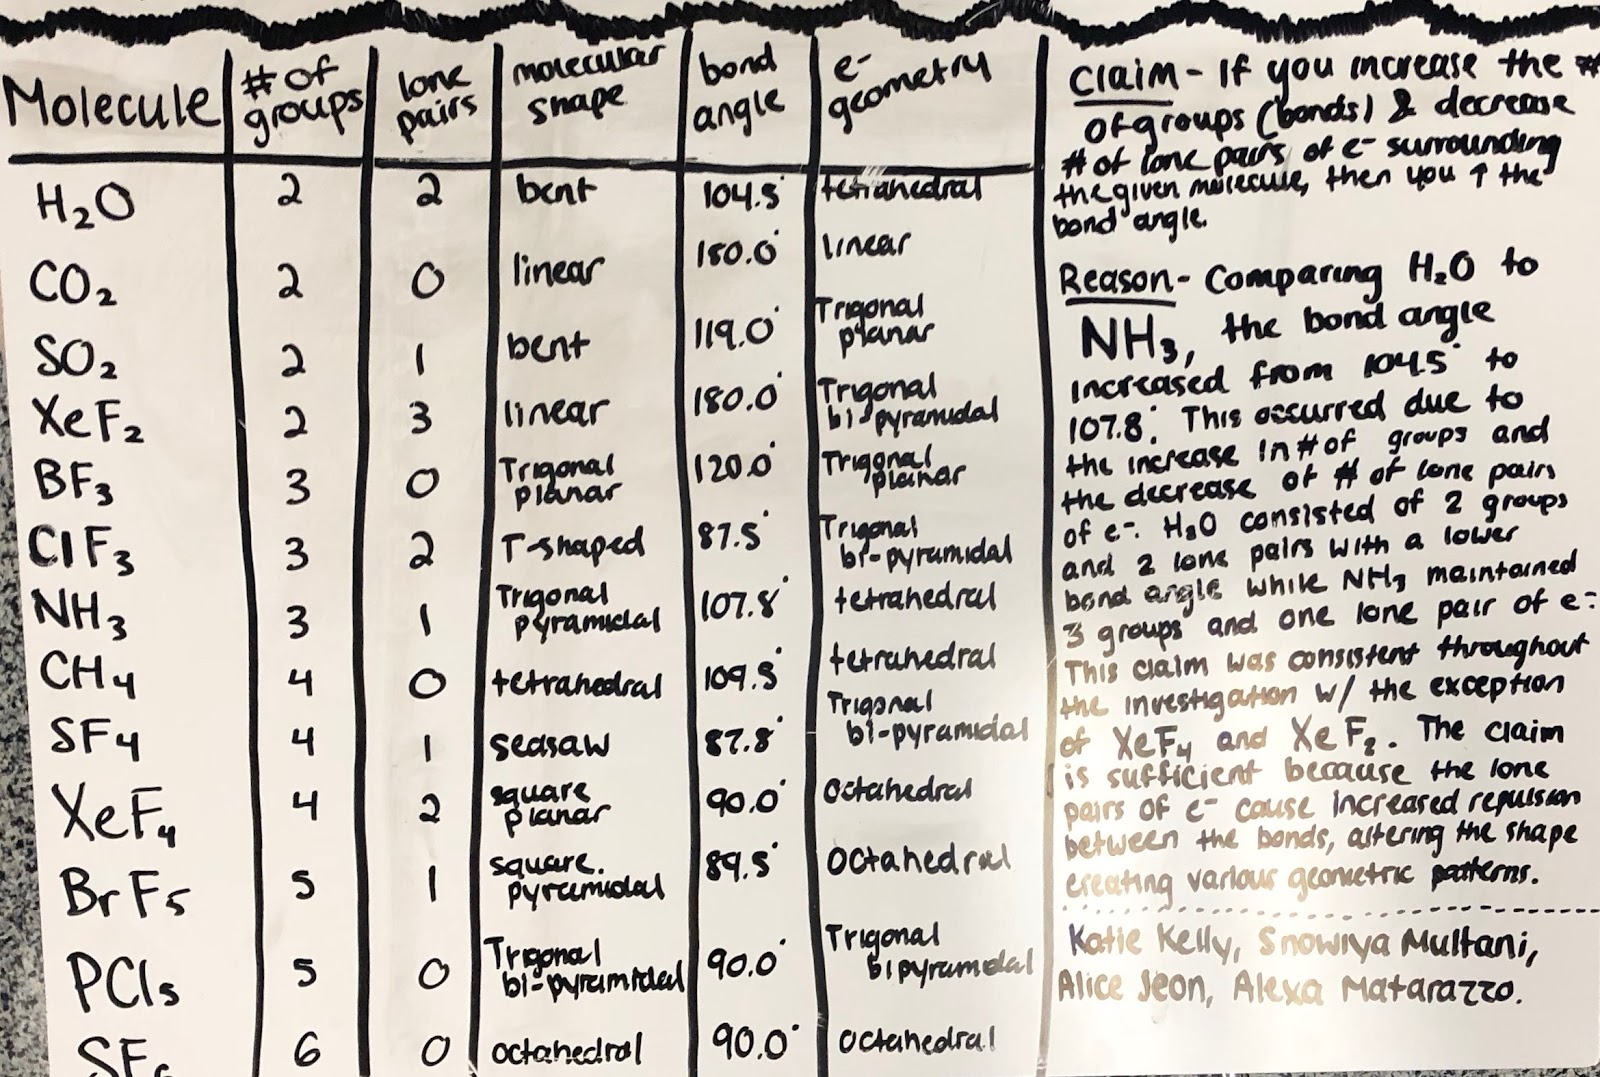 Molecule # of groups lone pairs molecular shape bond angle e- geometry
H2O 2 2 bent 104.5° tetrahedral
CO2 2 0 linear 180.0° linear
SO2 2 1 bent 119.0° Trigonal planar
XeF2 2 3 linear 180.0° Trigonal bi-pyramidal
BF3 3 0 Trigonal planar 120.0° Trigonal planar
ClF3 3 2 T-shaped 87.5° Trigonal bi-pyramidal
NH3 3 1 Trigonal pyramidal 107.8° tetrahedral
CH4 4 0 tetrahedral 109.5° tetrahedral
SF4 4 1 seasaw 87.8° Trigonal bi-pyramidal
XeF4 4 2 square planar 90.0° Octahedral
BrF5 5 1 square pyramidal 89.5° Octahedral
PCl5 5 0 Trigonal bi-pyramidal 90.0° Trigonal bipyramidal
SF6 6 0 octahedral 90.0° octahedral
Claim - If you increase the #
of groups (bonds) & decrease
# of lone pairs of e- surrounding
the given molecule, then you ↑ the
bond angle.
Reason - Comparing H2O to
NH3, the bond angle
increased from 104.5° to
107.8°. This occurred due to
the increase in # of groups and
the decrease of # of lone pairs
of e-. H2O consisted of 2 groups
and 2 lone pairs with a lower
bond angle while NH3 maintained
3 groups and one lone pair of e-.
This claim was consistent throughout
the investigation w/ the exception
of XeF4 and XeF2. The claim
is sufficient because the lone
pairs of e- cause increased repulsion
between the bonds, altering the shape
creating various geometric patterns.
Katie Kelly, Snowiya Multani,
Alice Jeon, Alexa Matarazzo.